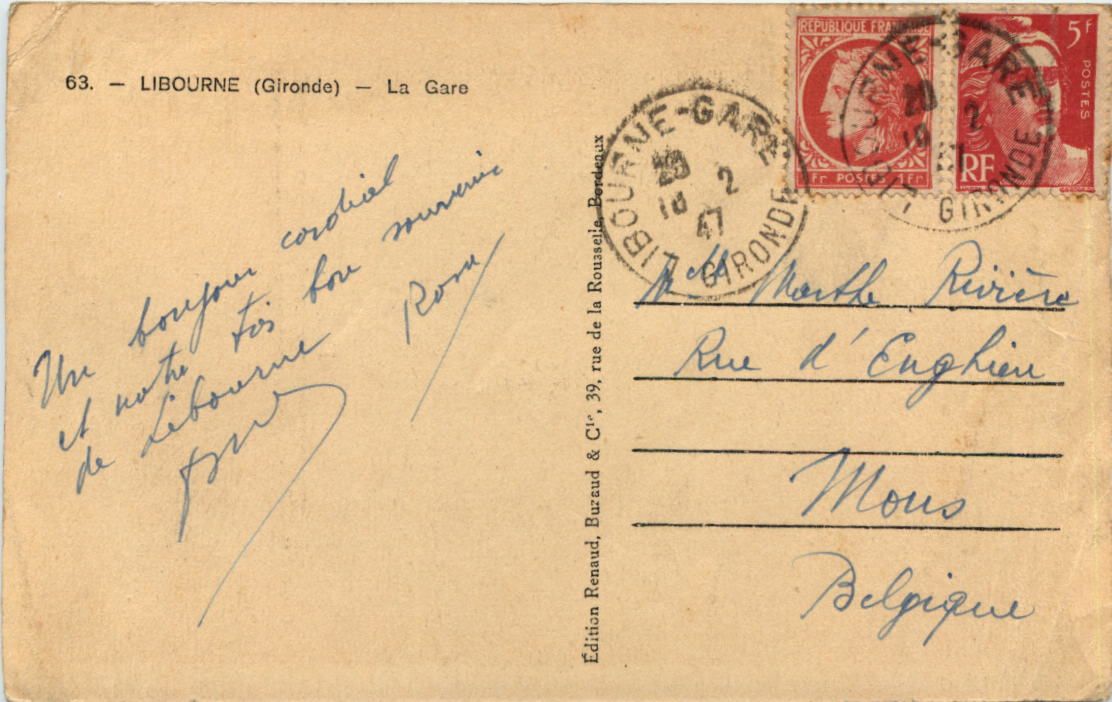 63. — LIBOURNE (Gironde) — La Gare
Un bonjour cordial
et notre bon souvenir
de Libourne
Édition Renaud, Buzaud & Cie, 39, rue de la Rousselle, Bordeaux
LIBOURNE-GARE
20
18 2
47
GIRONDE
RÉPUBLIQUE FRANÇAISE
1Fr POSTES 1Fr
5F
POSTES
RF
LIBOURNE-GARE
20
18 2
47
GIRONDE
Melle Marthe Rivière
Rue d'Enghien
Mons
Belgique